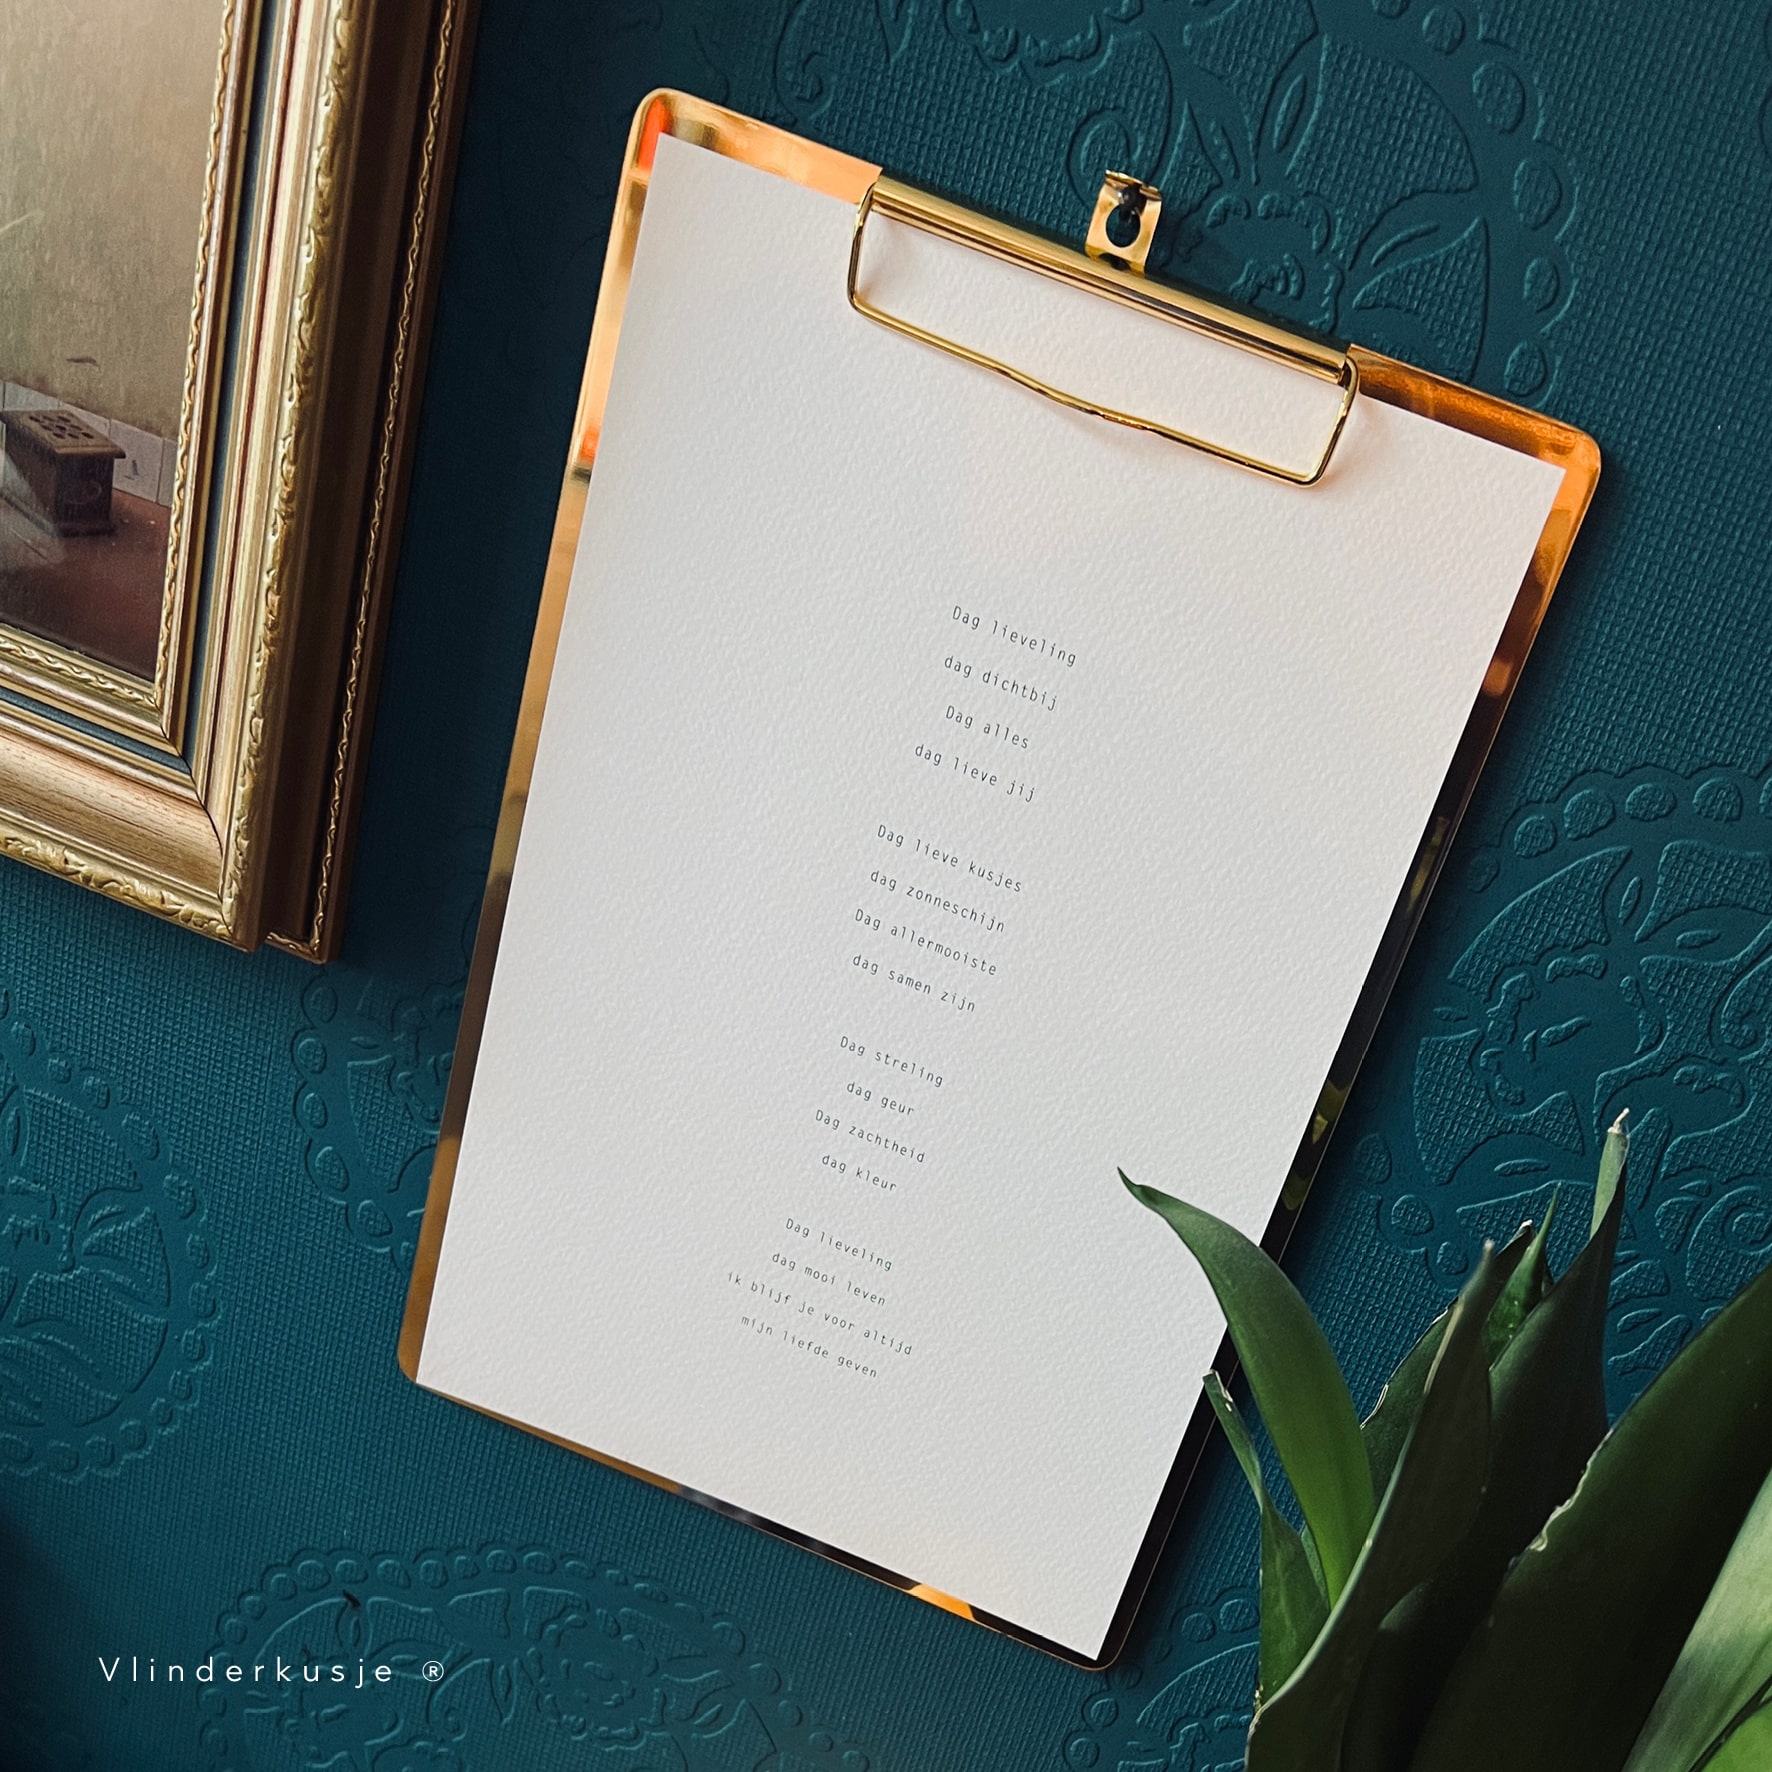 Dag lieveling
dag dichtbij
Dag alles
dag lieve jij
Dag lieve kusjes
dag zonneschijn
Dag allermooiste
dag samen zijn
Dag streling
dag geur
Dag zachtheid
dag kleur
Dag lieveling
dag mooi leven
ik blijf je voor altijd
mijn liefde geven
Vlinderkusje ®